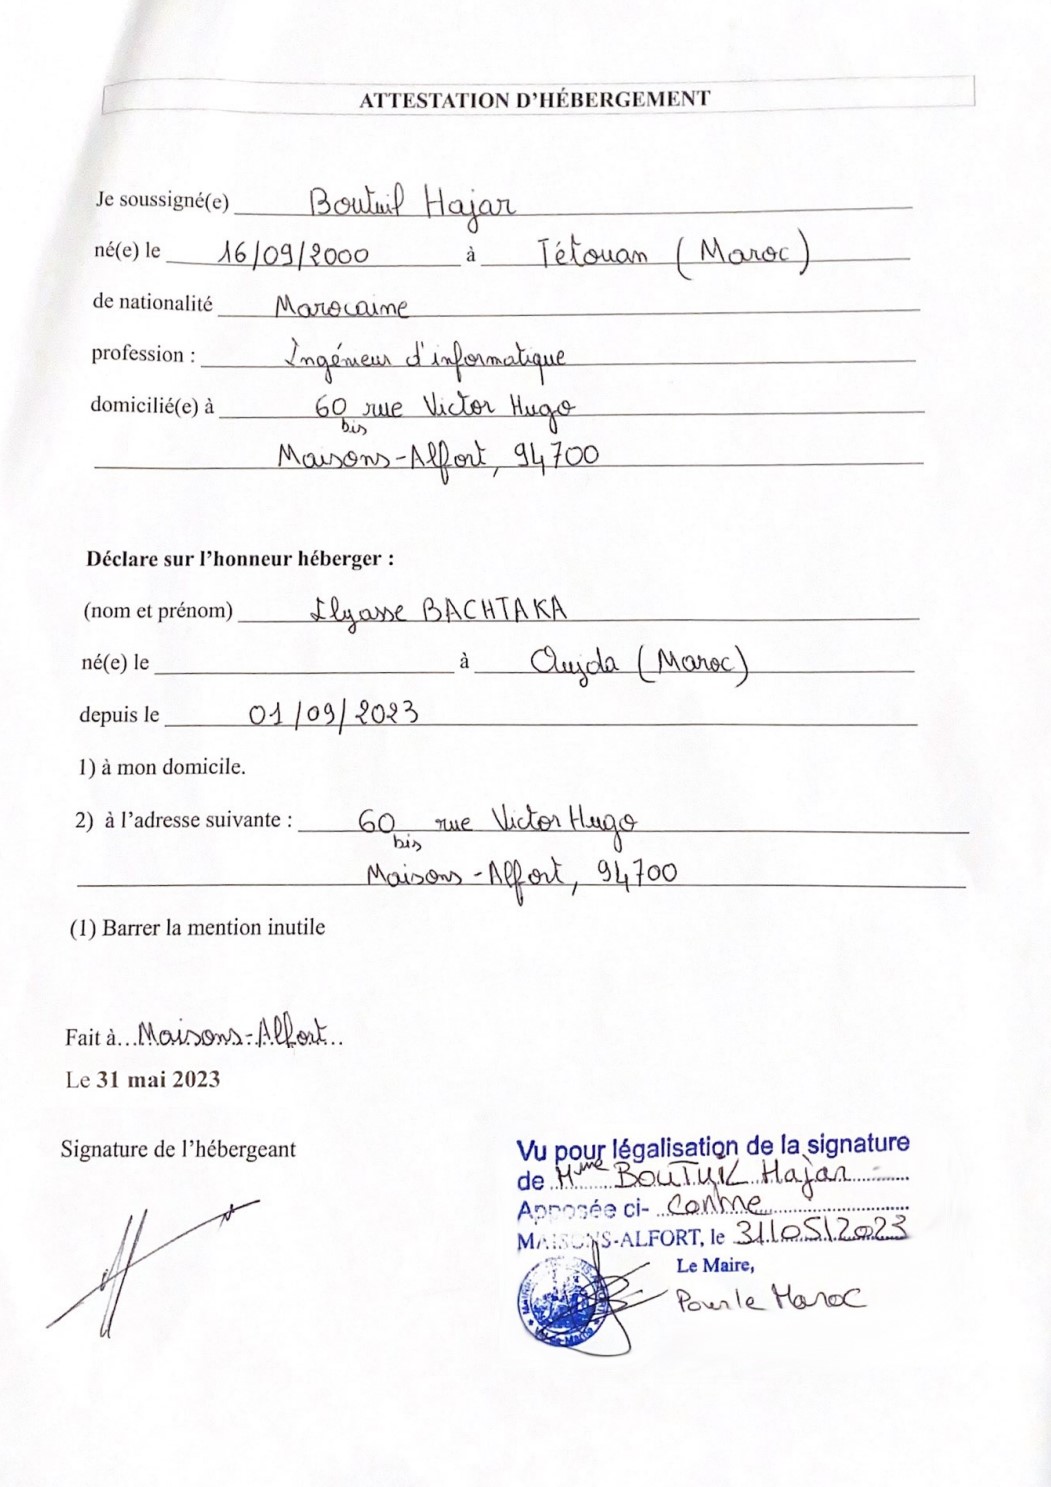 ATTESTATION D'HÉBERGEMENT
Je soussigné(e) Boutuil Hajar
né(e) le 16/09/2000 à Tétouan (Maroc)
de nationalité Marocaine
profession : Ingénieur d'informatique
domicilié(e) à 60 bis rue Victor Hugo
Maisons-Alfort, 94700
Déclare sur l'honneur héberger :
(nom et prénom) Ilyasse BACHTAKA
né(e) le à Oujda (Maroc)
depuis le 01/09/2023
1) à mon domicile.
2) à l'adresse suivante : 60 bis rue Victor Hugo
Maisons-Alfort, 94700
(1) Barrer la mention inutile
Fait à...Maisons-Alfort..
Le 31 mai 2023
Signature de l'hébergeant
Vu pour légalisation de la signature
de Mme BOUTUIL Hajar
Apposée ci- contre
MAISONS-ALFORT, le 31/05/2023
Le Maire,
Pour le Maroc